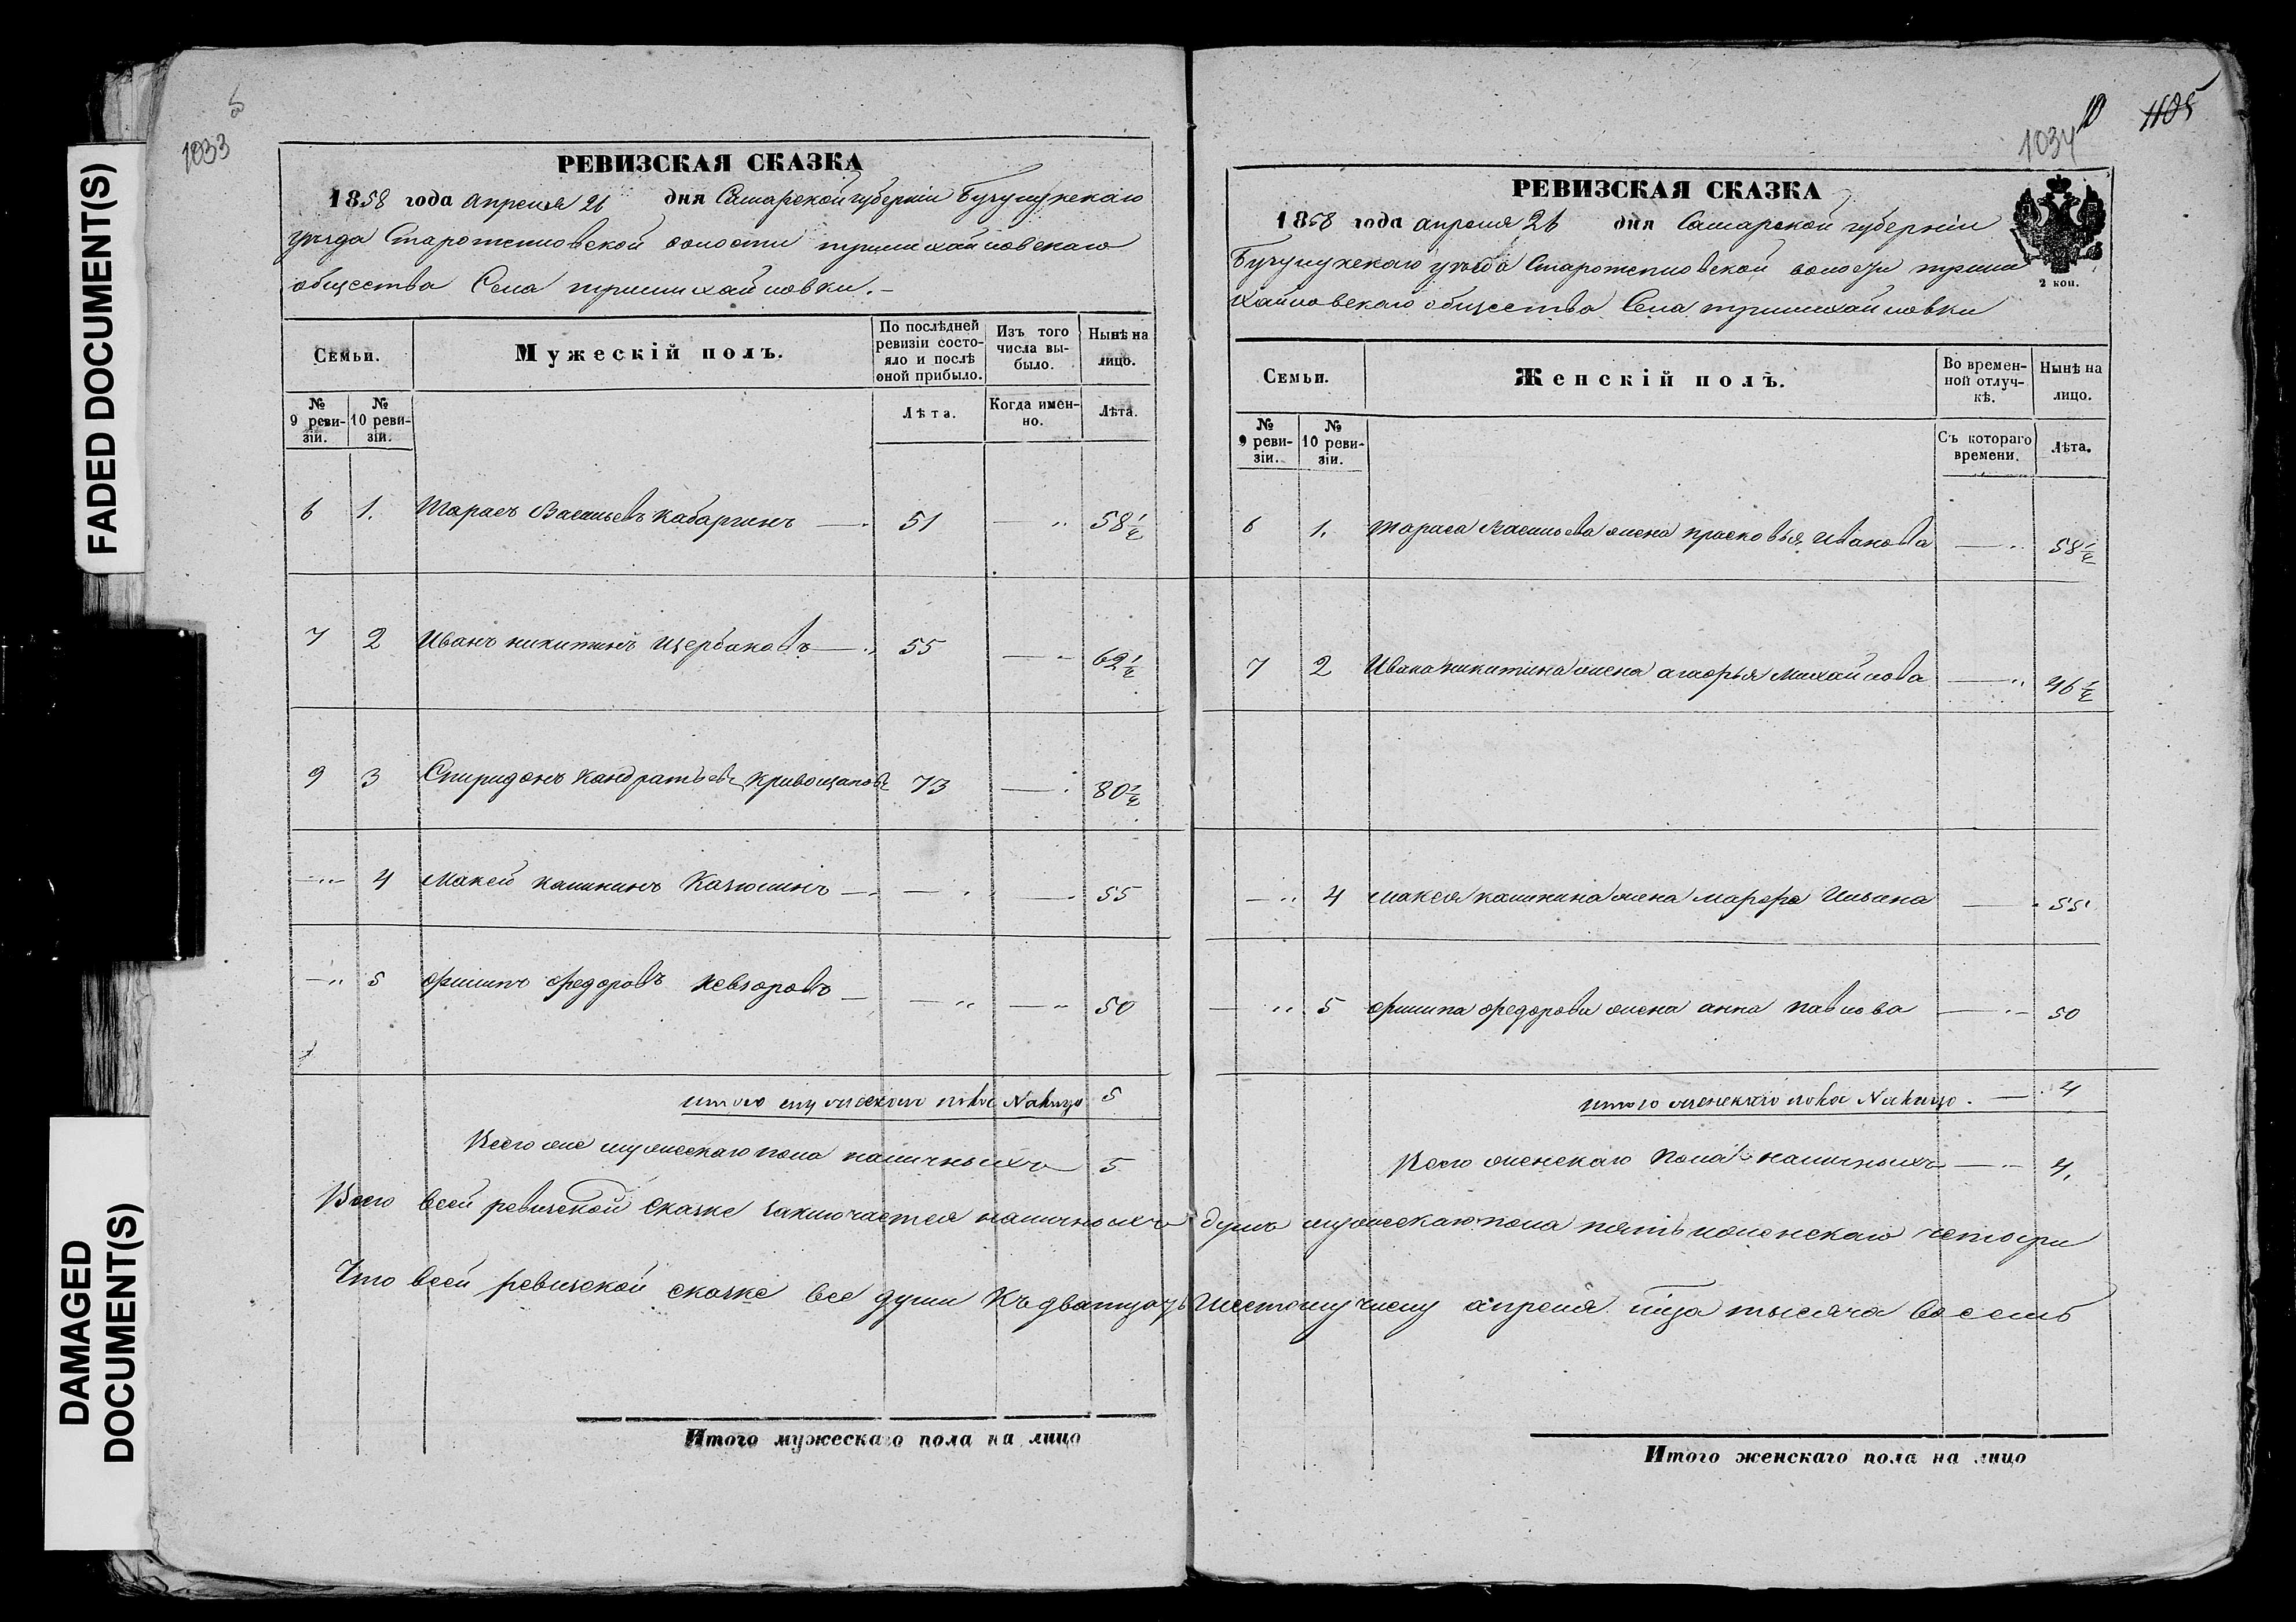 FADED DOCUMENT(S)
DAMAGED
DOCUMENT(S)
1033
5
РЕВИЗСКАЯ СКАЗКА
1858 года апреля 26 дня Самарской губерніи Бугульминскаго
уезда Старотепловской волости
общества Села
Семьи.
Мужескій полъ.
По послѣдней
ревизіи состо-
яло и послѣ
оной прибыло.
Изъ того
числа вы-
было.
Нынѣ на
лицо.
№
9 реви-
зіи.
№
10 реви-
зіи.
Лѣта.
Когда имен-
но.
Лѣта.
6 1. Тарасъ Васильевъ Кабаргинъ 51 58 1/2
7 2 Иванъ никитинъ Щербаковъ 55 62 1/2
9 3 Спиридонъ Кандратьевъ 73 80 1/2
4 Мокей калининъ 55
5 филипъ федоровъ Невзоровъ 50
итого мужескаго пола Налицо 5
Всего же мужескаго пола наличныхъ 5
Всего всей ревизской сказке заключается наличныхъ
Что всей ревизской сказке все души къ дватцать
Итого мужескаго пола на лицо
1034
10
1105
РЕВИЗСКАЯ СКАЗКА
1858 года апреля 26 дня Самарской губерніи
уезда Старотепловской волости
общества Села
2 коп.
Семьи.
Женскій полъ.
Во времен-
ной отлуч-
кѣ.
Нынѣ на
лицо.
№
9 реви-
зіи.
№
10 реви-
зіи.
Съ котораго
времени.
Лѣта.
6 1. Тараса Васильева жена прасковья Иванова 58 1/2
7 2 Ивана никитина жена агафья Михайлова 46 1/2
4 мокея калинина жена марфа Ильина 55
5 филипа федорова жена анна павлова 50
итого женскаго пола Налицо. 4
Всего женскаго пола наличныхъ 4.
душъ мужескаго пола пять и женскаго четыри
шестому числу апреля тысяча восемь
Итого женскаго пола на лицо